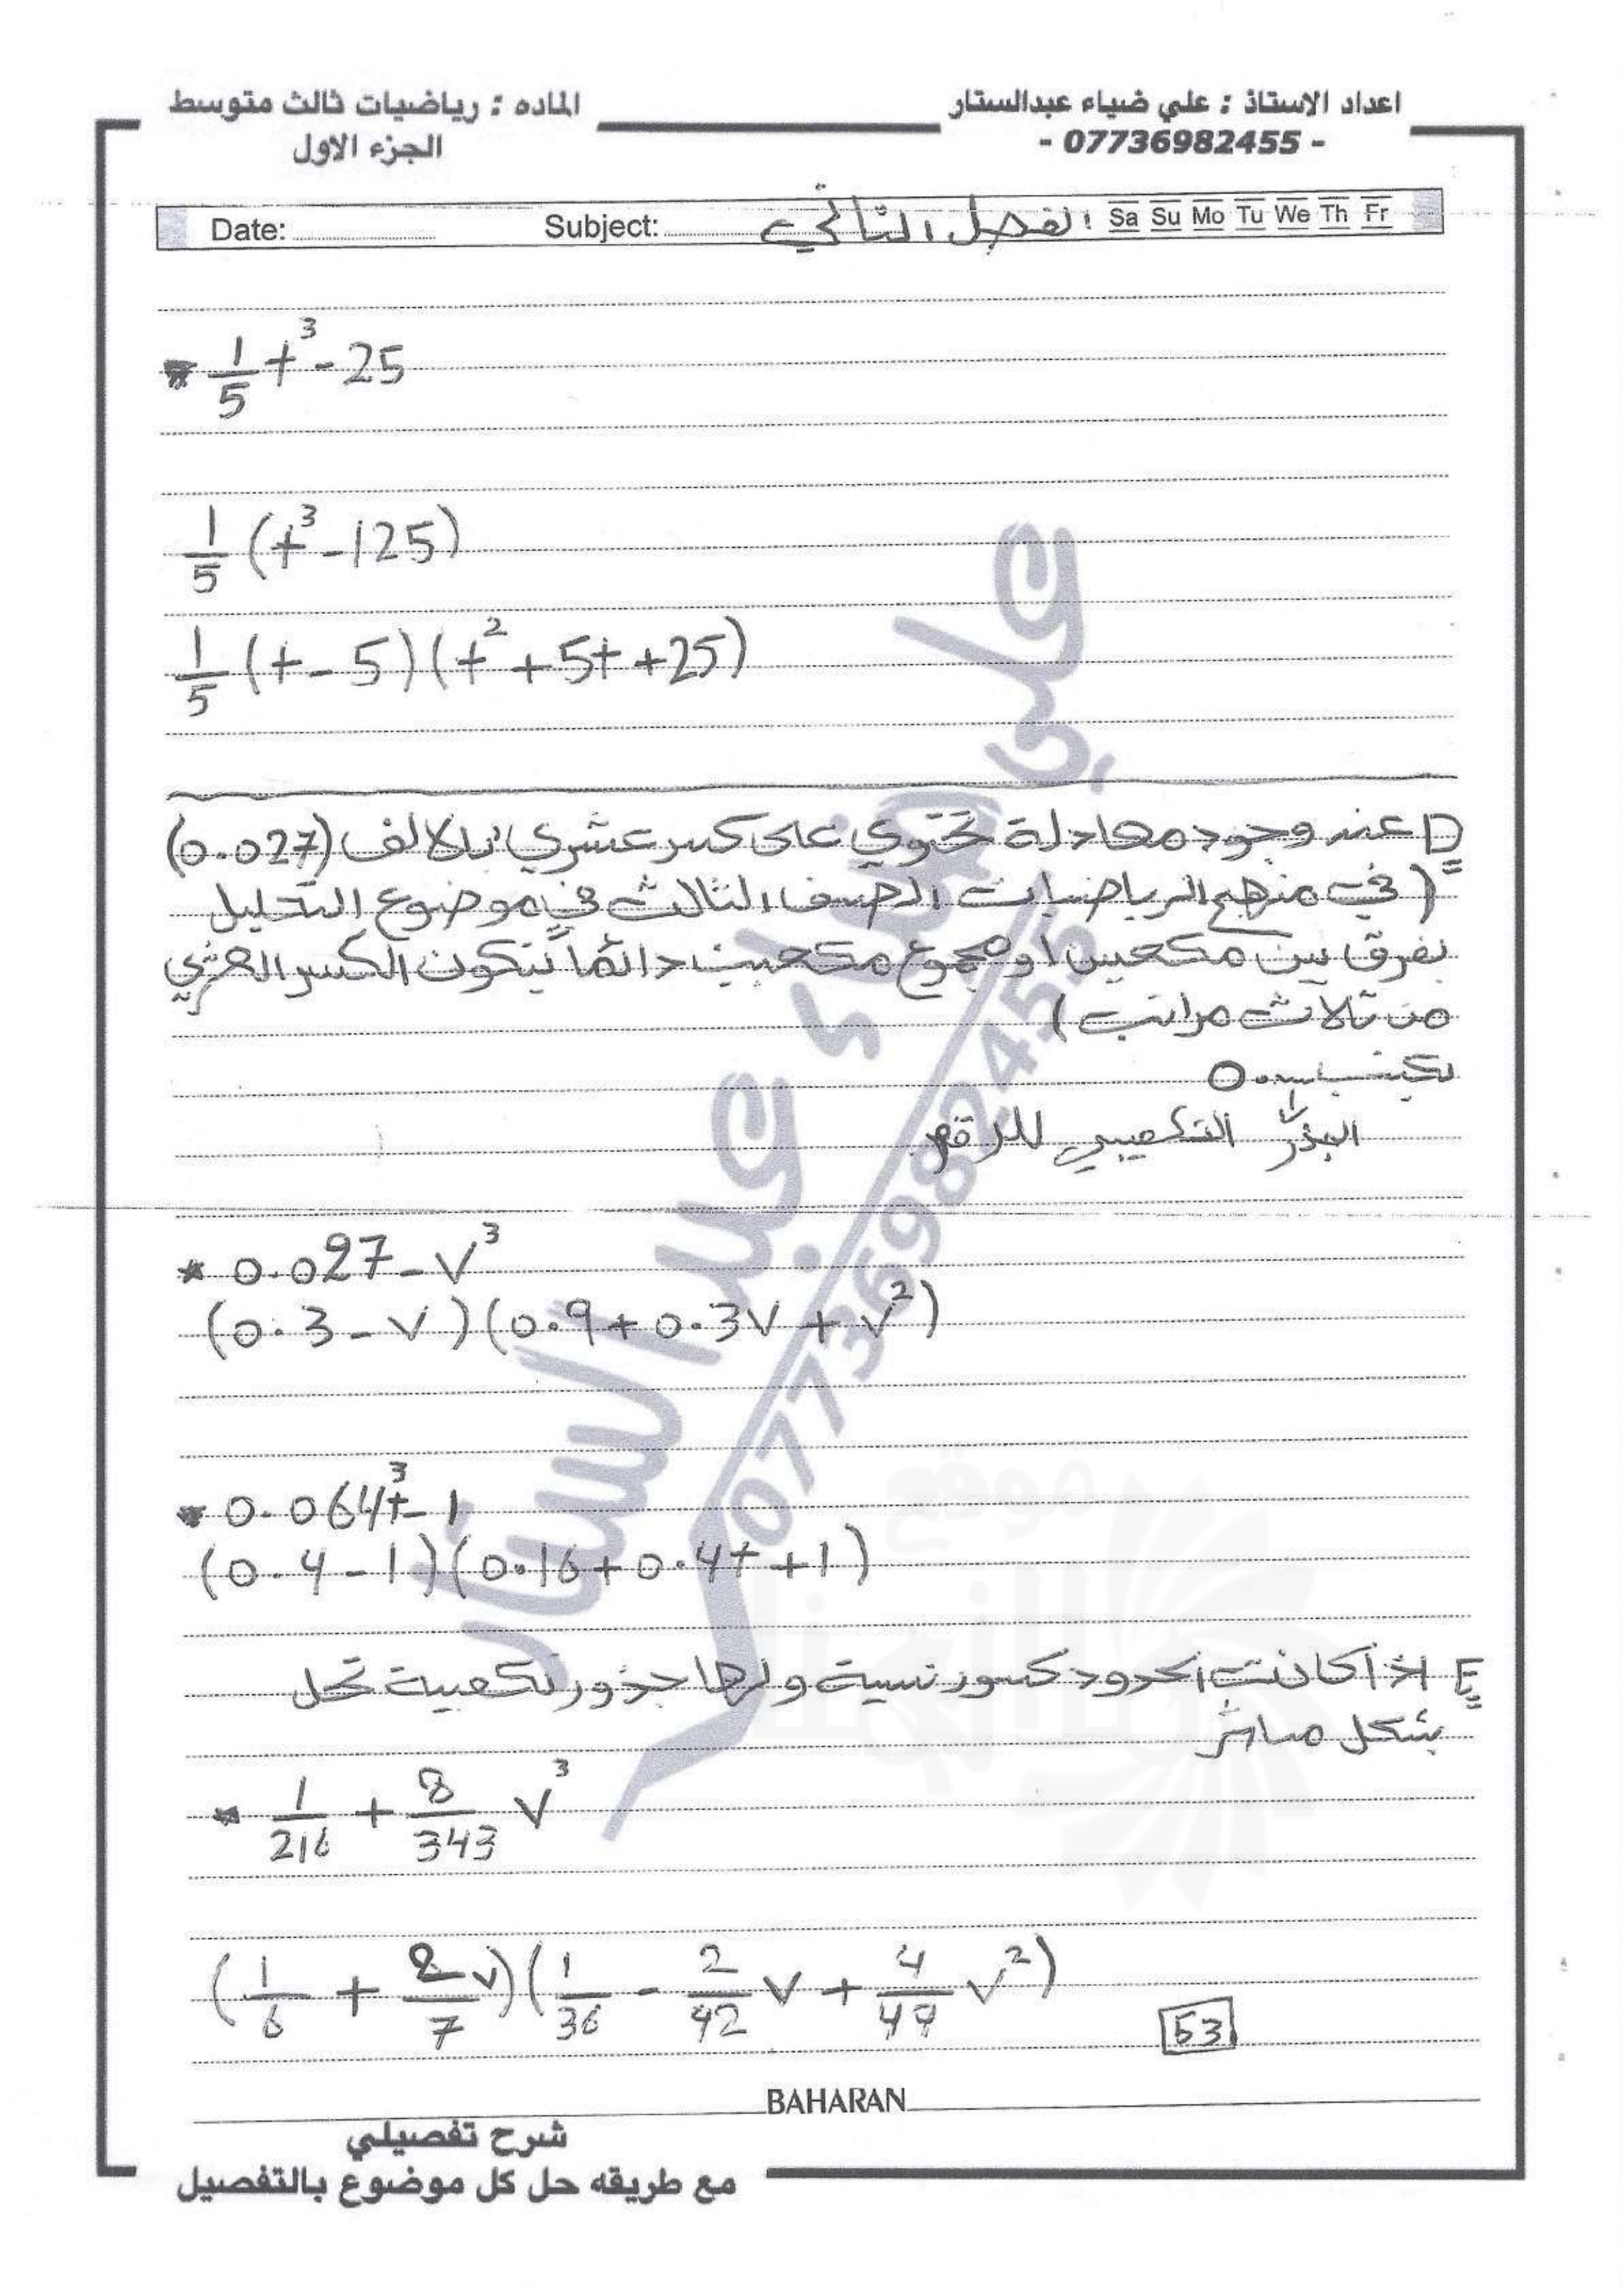 اعداد الاستاذ : علي ضياء عبدالستار
- 07736982455 -
الماده : رياضيات ثالث متوسط
الجزء الاول
Date: Subject: الفصل الثاني Sa Su Mo Tu We Th Fr
* 1/5 t³ - 25
1/5 (t³ - 125)
1/5 (t - 5)(t² + 5t + 25)
D عند وجود معادلة تحتوي على كسر عشري بالالف (0.027)
( في منهج الرياضيات الصف الثالث في موضوع التحليل
بفرق بين مكعبين او مجموع مكعبين دائماً يتكون الكسر العشري
من ثلاث مراتب )
يكتب 0.
الجذر التكعيبي للرقم
* 0.027 - v³
(0.3 - v)(0.9 + 0.3v + v²)
* 0.064t³ - 1
(0.4 - 1)(0.16 + 0.4t + 1)
E اذا كانت الحدود كسور نسبية ولها جذور تكعيبية تحل
بشكل مباشر
* 1/216 + 8/343 v³
(1/6 + 2/7 v)(1/36 - 2/42 v + 4/49 v²)
53
BAHARAN
شرح تفصيلي
مع طريقه حل كل موضوع بالتفصيل
علي ضياء عبد الستار
07736982455
موقع